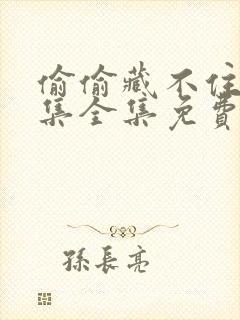 偷偷藏不住
集全集免費
孫長亮